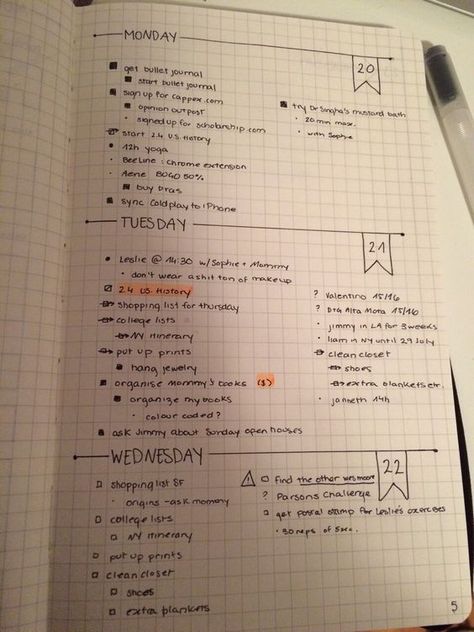 MONDAY
20
get bullet journal
start bullet journal
sign up for cappex.com
opinion outpost
signed up for scholarship.com
start 2.4 U.S. History
12h yoga
BeeLine : Chrome extension
Aerie BOGO 50%
buy bras
sync Coldplay to iPhone
try Dr Singha's mustard bath
20 min max.
with Sophie
TUESDAY
21
Leslie @ 14:30 w/Sophie + Mommy
don't wear a shit ton of makeup
2.4 U.S. History
shopping list for thursday
college lists
NY itinerary
put up prints
hang jewelry
organise Mommy's books ($)
organize my books
colour coded?
ask Jimmy about Sunday open houses
? Valentino 15/16
? D+G Alta Moda 15/16
jimmy in LA for 3 weeks
liam in NY until 29 July
clean closet
shoes
extra blankets etc.
janneth 14h
WEDNESDAY
22
shopping list SF
origins - ask mommy
college lists
NY itinerary
put up prints
clean closet
shoes
extra blankets
! find the other wes moore
? Parsons Challenge
get postal stamp for Leslie's exercises
30 reps of 5sec.
5